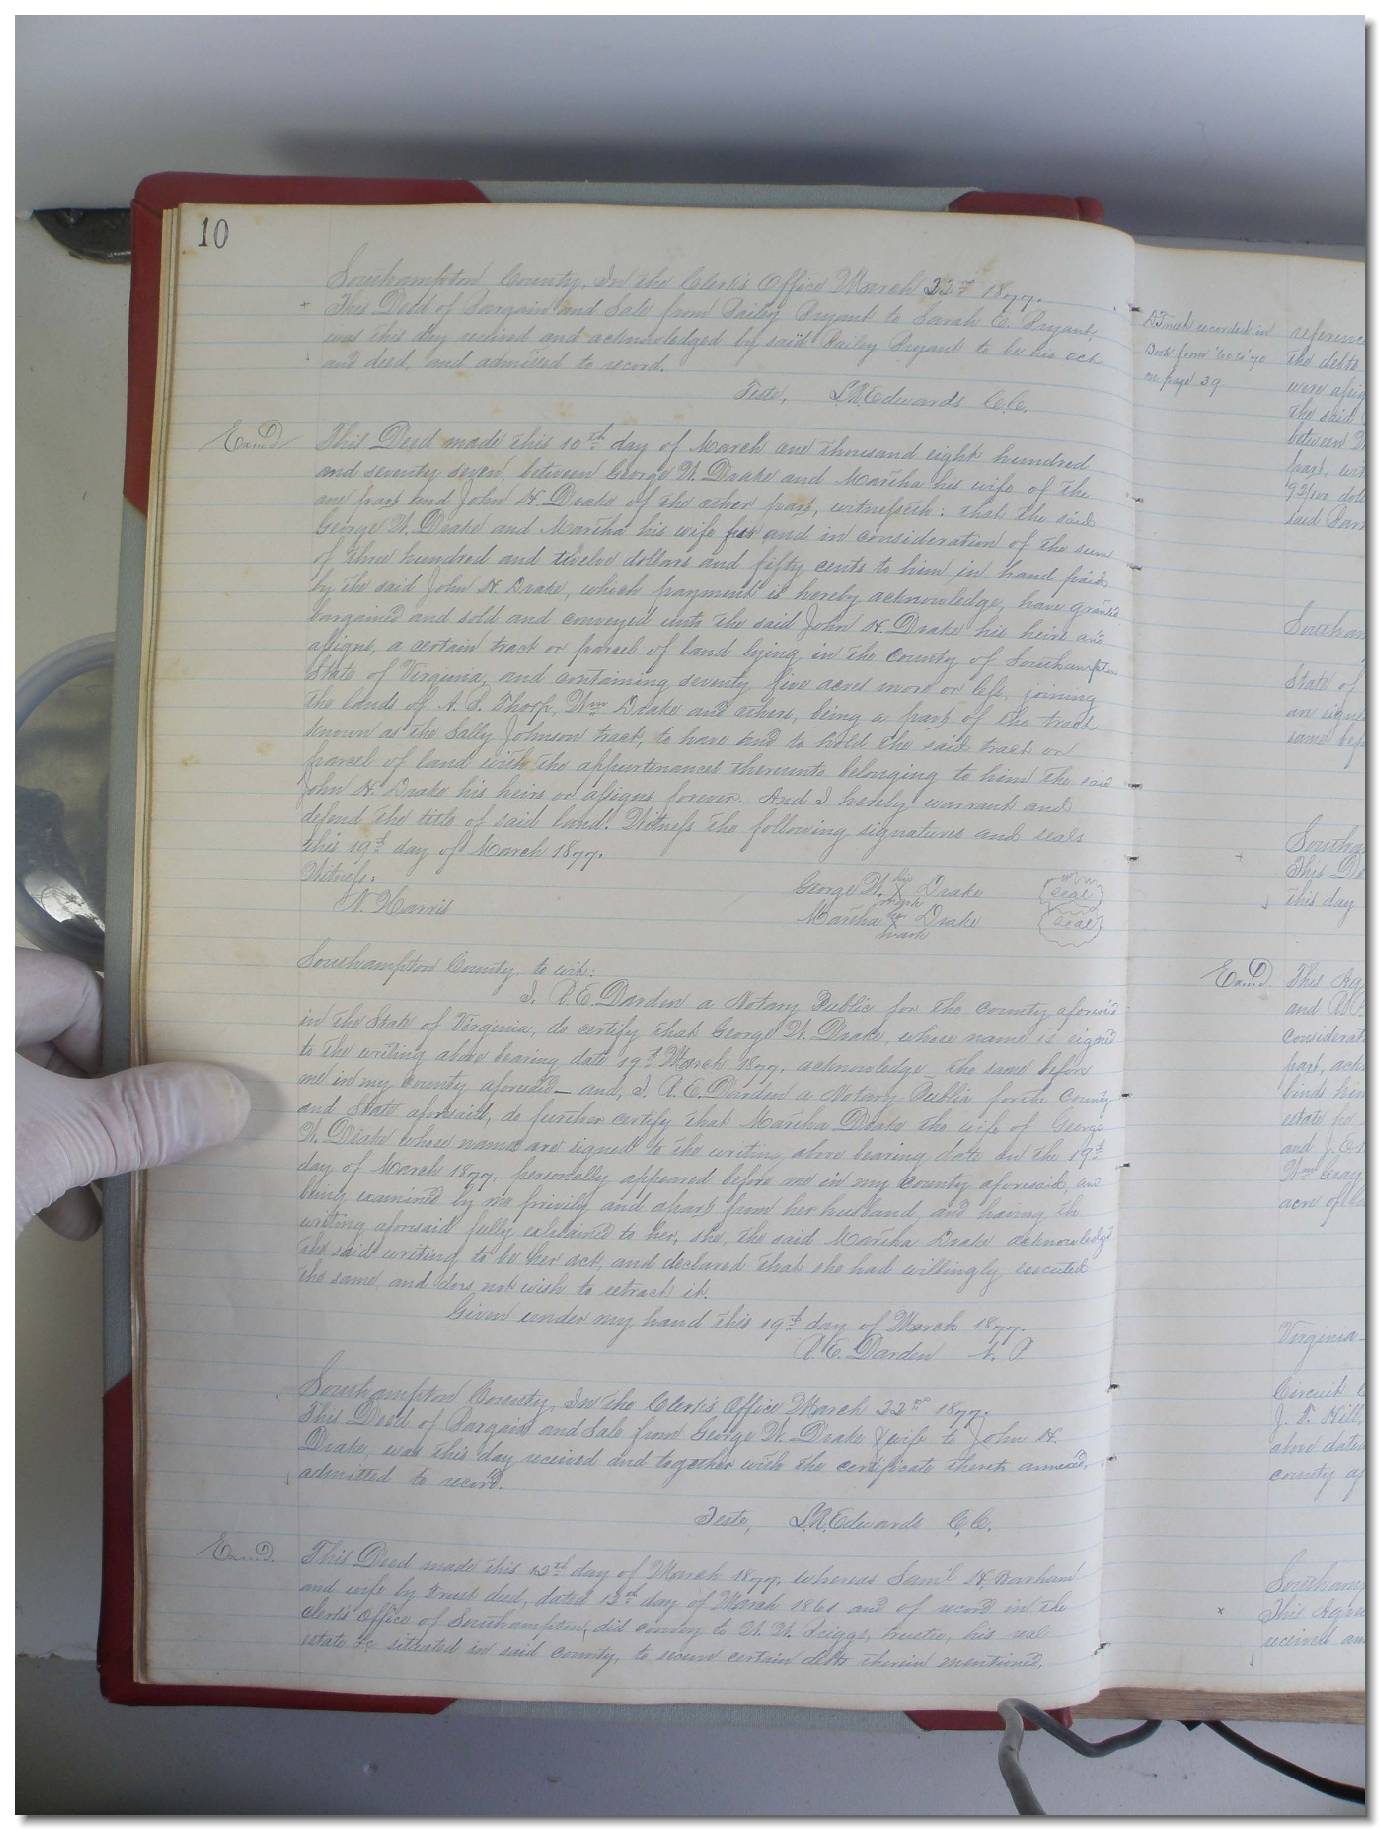 10
Southampton County, In the Clerk's Office March 22nd 1877.
This Deed of Bargain and Sale from Bailey Bryant to Sarah E. Bryant,
was this day received and acknowledged by said Bailey Bryant to be his act
and deed, and admitted to record.
Teste, L.R. Edwards C.C.
Exmd
This Deed made this 10th day of March one thousand eight hundred
and seventy seven, between George W. Drake and Martha his wife of the
one part and John H. Drake of the other part, witnesseth: that the said
George W. Drake and Martha his wife for and in consideration of the sum
of three hundred and twelve dollars and fifty cents to him in hand paid
by the said John H Drake, which payment is hereby acknowledge, have granted
bargained and sold and conveyed unto the said John H. Drake his heirs and
assigns, a certain tract or parcel of land lying in the County of Southampton
State of Virginia, and containing seventy five acres more or less, joining
the lands of A. S. Thorp, Wm Drake and others, being a part of the tract
known as the Sally Johnson tract, to have and to hold the said tract or
parcel of land with the appurtenances thereunto belonging to him the said
John H. Drake his heirs or assigns forever. And I hereby warrant and
defend the title of said land. Witness the following signatures and seals
this 19th day of March 1877.
Witness,
N. Harris
George W. his X mark Drake seal
Martha her X mark Drake seal
Southampton County, to wit:
I, R. E. Darden a Notary Public for the County aforesaid
in the State of Virginia, do certify that George W. Drake, whose name is signed
to the writing above bearing date 19th March 1877, acknowledge the same before
me in my County aforesaid — and, I R. E. Darden a Notary Public for the County
and State aforesaid, do further certify that Martha Drake the wife of George
W. Drake whose names are signed to the writing above bearing date on the 19th
day of March 1877, personally appeared before me in my county aforesaid, and
being examined by me privily and apart from her husband and having the
writing aforesaid fully explained to her, she, the said Martha Drake acknowledgd
the said writing to be her act, and declared that she had willingly executed
the same, and does not wish to retract it.
Given under my hand this 19th day of March 1877.
R. E. Darden N. P.
Southampton County, In the Clerk's Office March 22nd 1877.
This Deed of Bargain and Sale from George W. Drake & wife to John H.
Drake, was this day received and together with the certificate thereto annexed,
admitted to record.
Teste, L.R. Edwards C.C.
Exmd
This Deed made this 13th day of March 1877, whereas Saml H. Barham
and wife by trust deed, dated 13th day of March 1861 and of record in the
Clerk's Office of Southampton, did convey to W. W. Briggs, trustee, his real
estate &c situated in said county, to secure certain debts therein mentioned,
D Trust recorded in
Book from
on page 39
the debts
were
the said
between
part,
said
Southam
State of
an
same
This De
this day
Exmd
This Ag
and
considerat
part,
binds him
estate
and J.
Wm Gray
acre of
Virginia
Circuit C
J. F. Hill
above dated
county
This Agree
received an